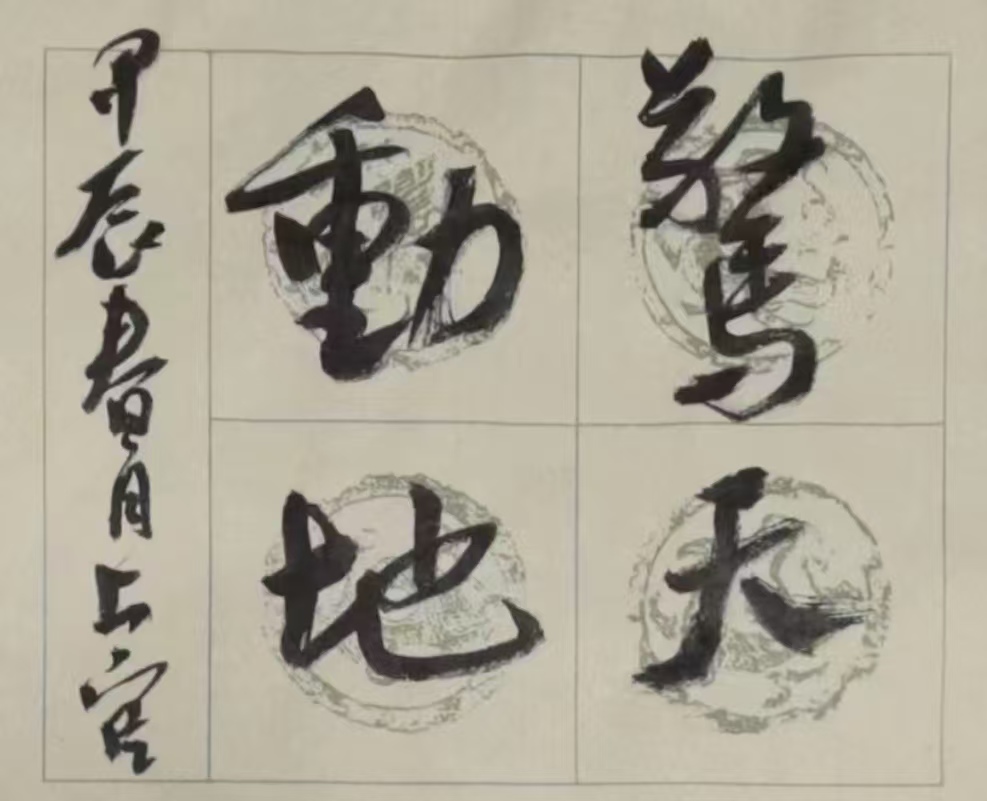 驚天
動地
甲辰春月上官